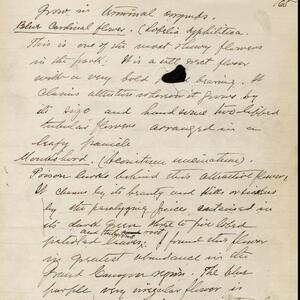 165
Grow in terminal corymbs.
Blue Cardinal flower. (Lobelia syphilitica.
This is one of the most showy flowers
in the park. It is a tall erect flower
with a very bold bearing. It
claims attention wherever it grows by
its size and handsome two-lipped
tubular flowers arranged in a
leafy panicle
Monkshood. (Aconitum uncinatum).
Poison lurks behind this attractive flower,
It charms by its beauty and kills or sickens
by the paralyzing juices contained in
its dark green three to five lobed
and thickish
petioled leaves. I found this flower
in greatest abundance in the
Grand Canyon region. The blue
purple very irregular flower is